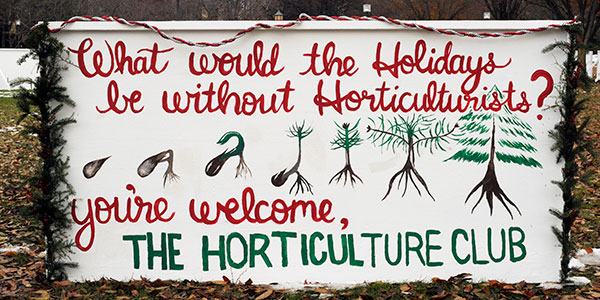 What would the Holidays
be without Horticulturists?
you're welcome,
THE HORTICULTURE CLUB